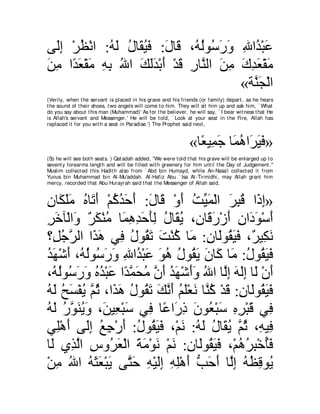 عَبْدُاللهِ وَرَسُولُهُ، قَالَ: فَيُقَالُ لَهُ: انْظُرْ إِلَى
مَقْعَدِكَ مِنَ النَّارِ قَدْ أَبْدَلَكَ اللهُ بِهِ مَقْعَدًا مِنَ
الْجَنَّةِ»
(Verily, when the servant is placed in his grave and his friends (or family) depart, as he hears
the sound of their shoes, two angels will come to him. They will sit him up and ask him, `What
do you say about this man (Muhammad)' As for the believer, he will say, `I bear witness that He
is Allah's servant and Messenger.' He will be told, `Look at your seat in the Fire, Allah has
replaced it for you with a seat in Paradise.') The Prophet said next,
«فَيَرَاهُمَا جَمِيعًا»
(So he will see both seats.) Qatadah added, "We were told that his grave will be enlarged up to
seventy forearms length and will be filled with greenery for him until the Day of Judgement."
Muslim collected this Hadith also from `Abd bin Humayd, while An-Nasa'i collected it from
Yunus bin Muhammad bin Al-Mu'addah. Al-Hafiz Abu `Isa At-Tirmidhi, may Allah grant him
mercy, recorded that Abu Hurayrah said that the Messenger of Allah said,
«إِذَا قُبِرَ الْمَيِّتُ أَوْ قَالَ: أَحَدُكُمْ أَتَاهُ مَلَكَانِ
أَسْوَدَانِ أَزْرَقَانِ، يُقَالُ لِأَحَدِهِمَا مُنْكَرٌ وَالْآخَرِ
نَكِيرٌ، فَيَقُولَانِ: مَا كُنْتَ تَقُولُ فِي هَذَا الرَّجُلِ؟
فَيَقُولُ: مَا كَانَ يَقُولُ هُوَ عَبْدُاللهِ وَرَسُولُهُ، أَشْهَدُ
أَنْ لَا إِلَهَ إِلَّا اللهُ وَأَشْهَدُ أَنَّ مُحَمَّدًا عَبْدُهُ وَرَسُولُهُ،
فَيَقُولَانِ: قَدْ كُنَّا نَعْلَمُ أَنَّكَ تَقُولُ هَذَا، ثُمَّ يُفْسَحُ لَهُ
فِي قَبْرِهِ سَبْعُونَ ذِرَاعًا فِي سَبْعِينَ، وَيُنَوَّرُ لَهُ
فِيهِ، ثُمَّ يُقَالُ لَهُ: نَمْ، فَيَقُولُ: أَرْجِعُ إِلَى أَهْلِي
فَأُخْبِرُهُمْ، فَيَقُولَانِ: نَمْ نَوْمَةَ الْعَرُوسِ الَّذِي لَا
يُوقِظُهُ إِلَّا أَحَبُّ أَهْلِهِ إِلَيْهِ حَتَّى يَبْعَثَهُ اللهُ مِنْ